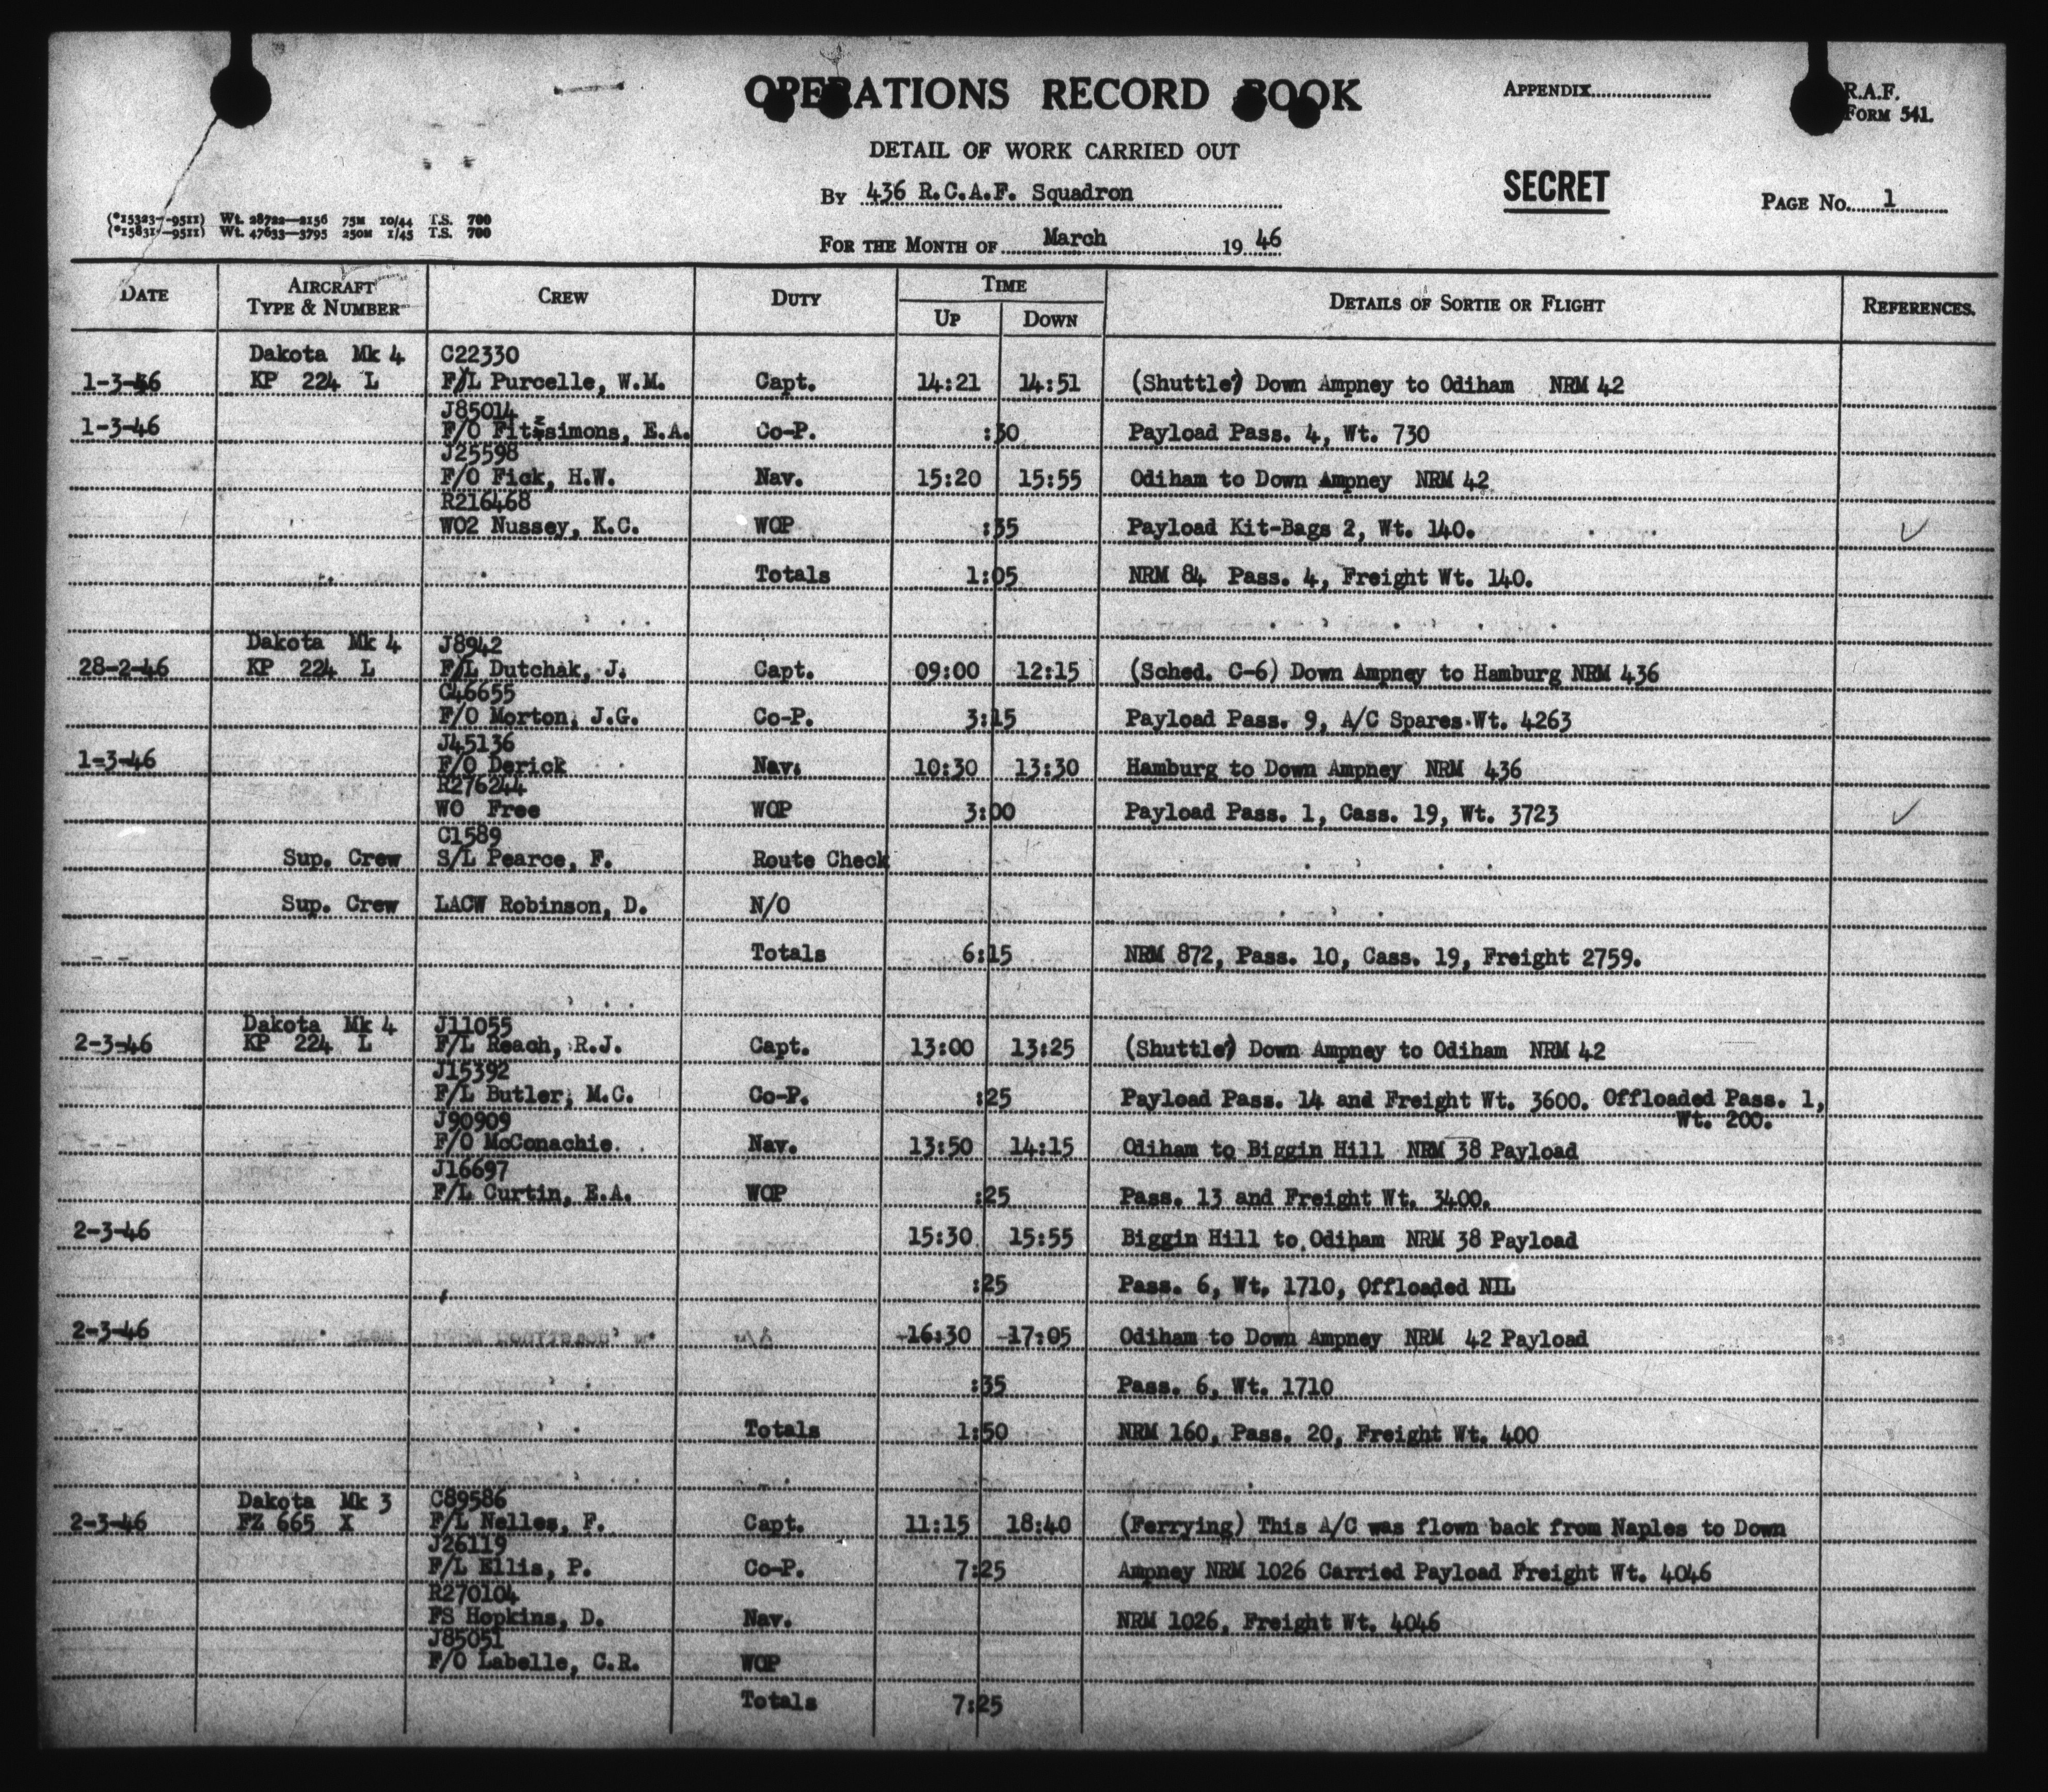 OPERATIONS RECORD BOOK
APPENDIX
R.A.F.
FORM 541.
DETAIL OF WORK CARRIED OUT
SECRET
BY 436 R.C.A.F. Squadron
PAGE No. 1
(*15323—9511) Wt. 28722—2156 75M 10/44 T.S. 700
(*15831—9511) Wt. 47633—3795 250M 1/45 T.S. 700
FOR THE MONTH OF March 19 46
DATE AIRCRAFT TYPE & NUMBER CREW DUTY TIME UP DOWN DETAILS OF SORTIE OR FLIGHT REFERENCES.
Dakota Mk 4 C22330
1-3-46 KP 224 L F/L Purcelle, W.M. Capt. 14:21 14:51 (Shuttle) Down Ampney to Odiham NRM 42
J85014
1-3-46 F/O Fitzsimons, E.A. Co-P. :30 Payload Pass. 4, Wt. 730
J25598
F/O Fick, H.W. Nav. 15:20 15:55 Odiham to Down Ampney NRM 42
R216468
WO2 Nussey, K.C. WOP :35 Payload Kit-Bags 2, Wt. 140.
Totals 1:05 NRM 84 Pass. 4, Freight Wt. 140.
Dakota Mk 4 J8942
28-2-46 KP 224 L F/L Dutchak, J. Capt. 09:00 12:15 (Sched. C-6) Down Ampney to Hamburg NRM 436
C46655
F/O Morton, J.G. Co-P. 3:15 Payload Pass. 9, A/C Spares Wt. 4263
J45136
1-3-46 F/O Derick Nav. 10:30 13:30 Hamburg to Down Ampney NRM 436
R276244
WO Free WOP 3:00 Payload Pass. 1, Cass. 19, Wt. 3723
C1589
Sup. Crew S/L Pearce, F. Route Check
Sup. Crew LACW Robinson, D. N/O
Totals 6:15 NRM 872, Pass. 10, Cass. 19, Freight 2759.
Dakota Mk 4 J11055
2-3-46 KP 224 L F/L Reach, R.J. Capt. 13:00 13:25 (Shuttle) Down Ampney to Odiham NRM 42
J15392
F/L Butler, M.C. Co-P. :25 Payload Pass. 14 and Freight Wt. 3600. Offloaded Pass. 1,
J90909 Wt. 200.
F/O McConachie. Nav. 13:50 14:15 Odiham to Biggin Hill NRM 38 Payload
J16697
F/L Curtin, E.A. WOP :25 Pass. 13 and Freight Wt. 3400.
2-3-46 15:30 15:55 Biggin Hill to Odiham NRM 38 Payload
:25 Pass. 6, Wt. 1710, Offloaded NIL
2-3-46 16:30 17:05 Odiham to Down Ampney NRM 42 Payload
:35 Pass. 6, Wt. 1710
Totals 1:50 NRM 160, Pass. 20, Freight Wt. 400
Dakota Mk 3 C89586
2-3-46 FZ 665 X F/L Nelles, F. Capt. 11:15 18:40 (Ferrying) This A/C was flown back from Naples to Down
J26119
F/L Ellis, P. Co-P. 7:25 Ampney NRM 1026 Carried Payload Freight Wt. 4046
R270104
FS Hopkins, D. Nav. NRM 1026, Freight Wt. 4046
J85051
F/O Labelle, C.R. WOP
Totals 7:25